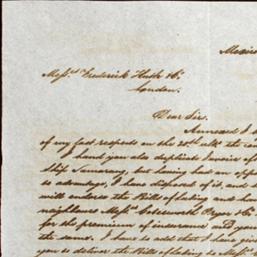 Mexico
Messrs Frederick Huth & Co.
London.
Dear Sir.
Annexed I
of my last respects on the 28th ult. the
I hand you also duplicate Invoice of
Ship Samarang, but having had an opp
to advantage, I have disposed of it, and
will endorse the Bills of Lading and have
neighbours Messrs
for the premium of insurance and you
the same. I have to add that I have give
you to deliver the Bills of Lading to Messrs